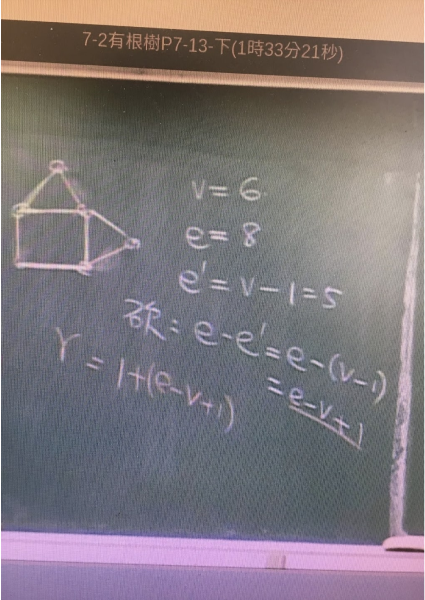 7-2有根樹P7-13-下(1時33分21秒)
v = 6
e = 8
e' = v - 1 = 5
砍: e - e' = e - (v-1)
= e - v + 1
r = 1 + (e - v + 1)